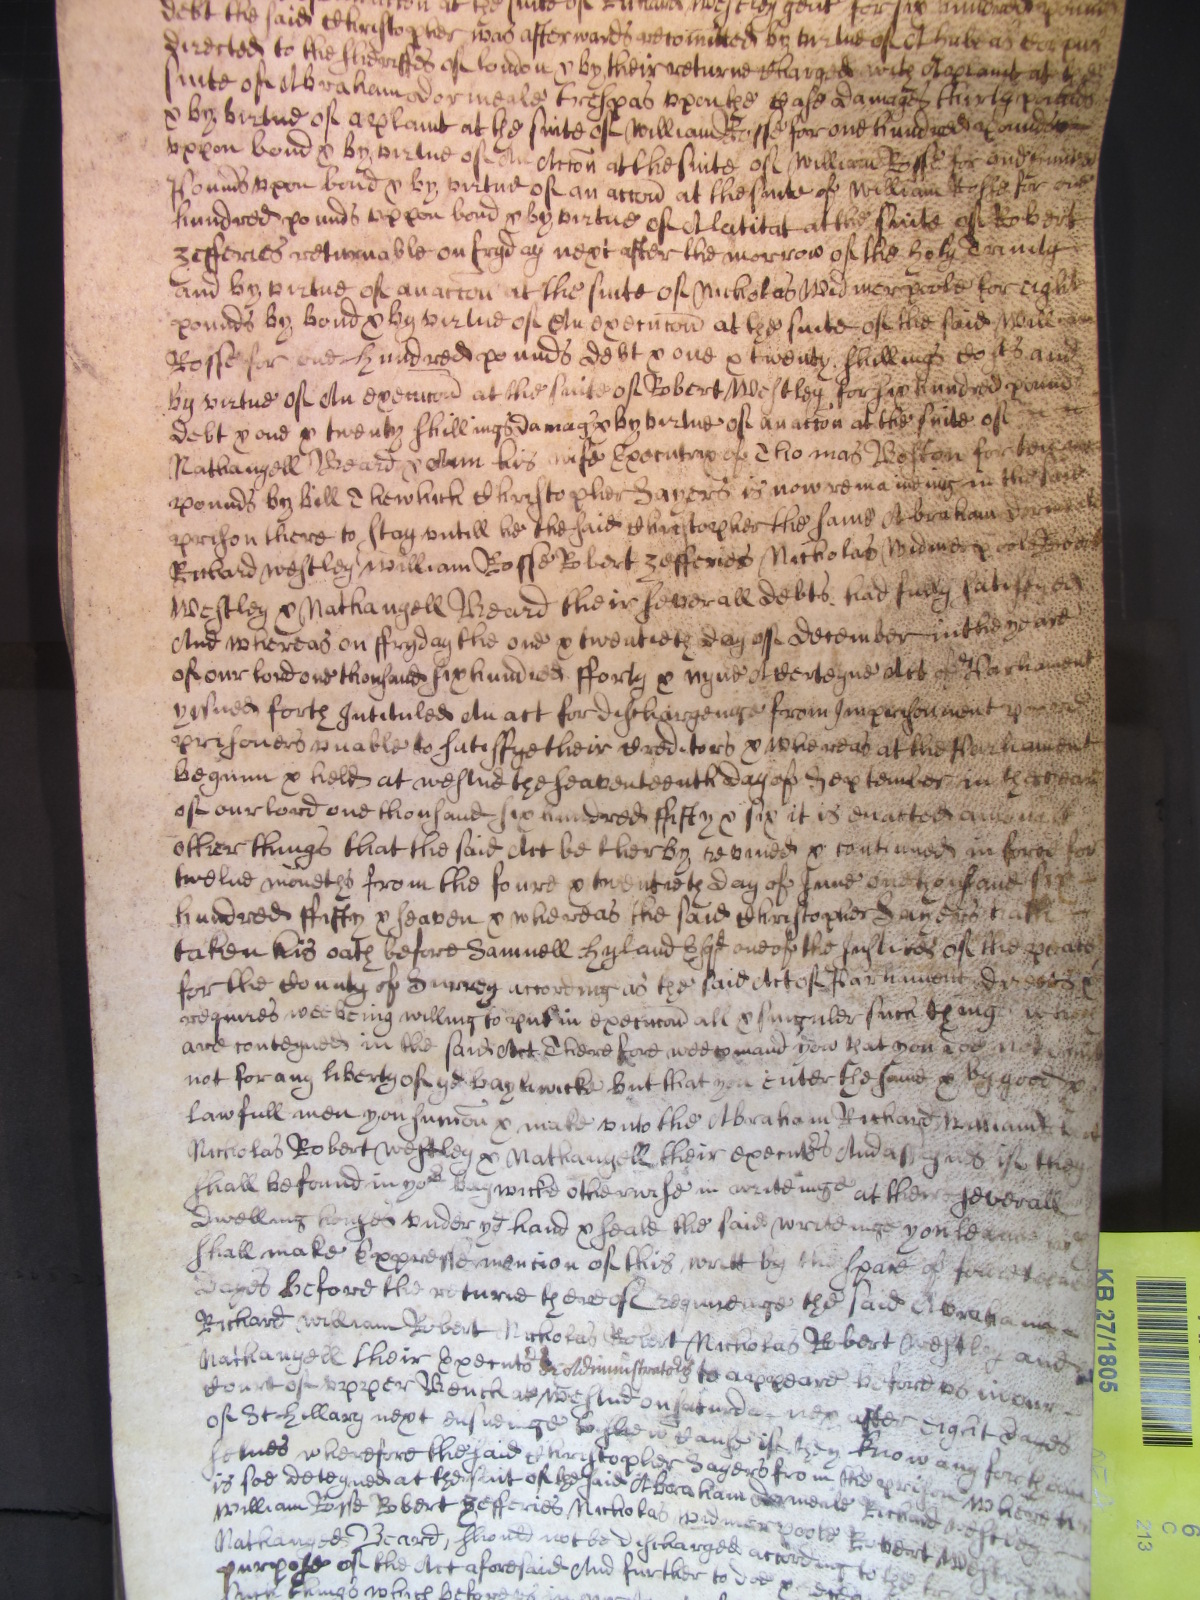 at the suite of Richard Westley gent for six hundred pound
debt the said Christopher was afterwards recomitted by virtue of A habeas corpus
directed to the Sheriffes of london & by their returne charged with A plaint at the
suite of Abraham dormeale trespas upon the case damages thirty pounds
& by virtue of a plaint at the suite of William Rosse for one hundred pounds
uppon bond & by virtue of An Accon at the suite of William Rosse for one hundred
Pounds upon bond & by virtue of an accon at the suite of William Rosse for one
hundred pounds uppon bond & by virtue of A latitat at the suite of Robert
Zefferies returnable on fryday next after the morrow of the holy Trinity
and by virtue of an accon at the suite of Nicholas Widmerpoole for eight
pounds by bond & by virtue of An execucon at the suite of the said William
Rosse for one hundred pounds debt & one & twenty shillings costs and
by virtue of An execucon at the suite of Robert Westley for six hundred pound
debt & one & twenty shillings damag & by virtue of an accon at the suite of
Nathanyell Beard & Ann his wife Executrix of Thomas Weston for
pounds by bill Thewhich Christopher Sayers is now remaineing in the said
prison there to stay untill he the said Christopher the same Abraham dormeale
Richard Westley William Rosse Robert Zefferies Nicholas Widmerpoole Robert
Westley & Nathanyell Beard their severall debts had fully satisfyed
And whereas on ffryday the one & twentieth day of December in the yeare
of our lord one thousand six hundred fforty & nyne A certeyne Act of Parliament
yssued forth Intituled An act for dischargeinge from Imprisonment poore
prisoners unable to satisffye their creditors & whereas at the Parliament
begunn & held at westm the seaventeenth day of September in the yeare
of our lord one thousand six hundred ffifty & six it is enacted amongst
other things that the said Act be therby revived & continued in force for
twelve moneths from the foure & twentieth day of June one thousand six
hundred ffifty & seaven & whereas the said Christopher Sayers hath
taken his oath before Samuell Hyland Esqr one of the Justices of the peace
for the County of Surrey according as the said Act of Parliament directs &
requires wee being willing to put in execucon all & singuler such things which
are conteyned in the said Act Therefore wee comand yow that you doe not omitt
not for any liberty of yor baylywicke but that you enter the same & by good &
lawfull men you sumon & make unto the Abraham Richard William
Nicholas Robert Westley & Nathanyell their executrs And assignes if they
shall be found in yor baywicke otherwise in writeinge at their severall
dwelling houses under yor hand & seale the said writeinge you leave
shall make Expresse mencion of this writt by the space of
dayes before the returne thereof requireinge the said Abraham
Richard William Robert Nicholas Robert Nicholas Robert Westley and
Nathanyell their Executrs or Administrators to appeare before us in our
Court of upper Bench at Westm on Saturday next after eight dayes
of St Hillary next ensueinge to shew cause if they know any for them
selves wherefore the said Christopher Sayers from the prison where hee
is soe deteyned at the suit of the said Abraham dormeale Richard Westley
William Rosse Robert Zefferies Nicholas Widmerpoole Robert Westley
Nathanyell Beard, should not be discharged according to the
purpose of the Act aforesaid And further to doe &
such things which before
KB 271/805
6
C
213